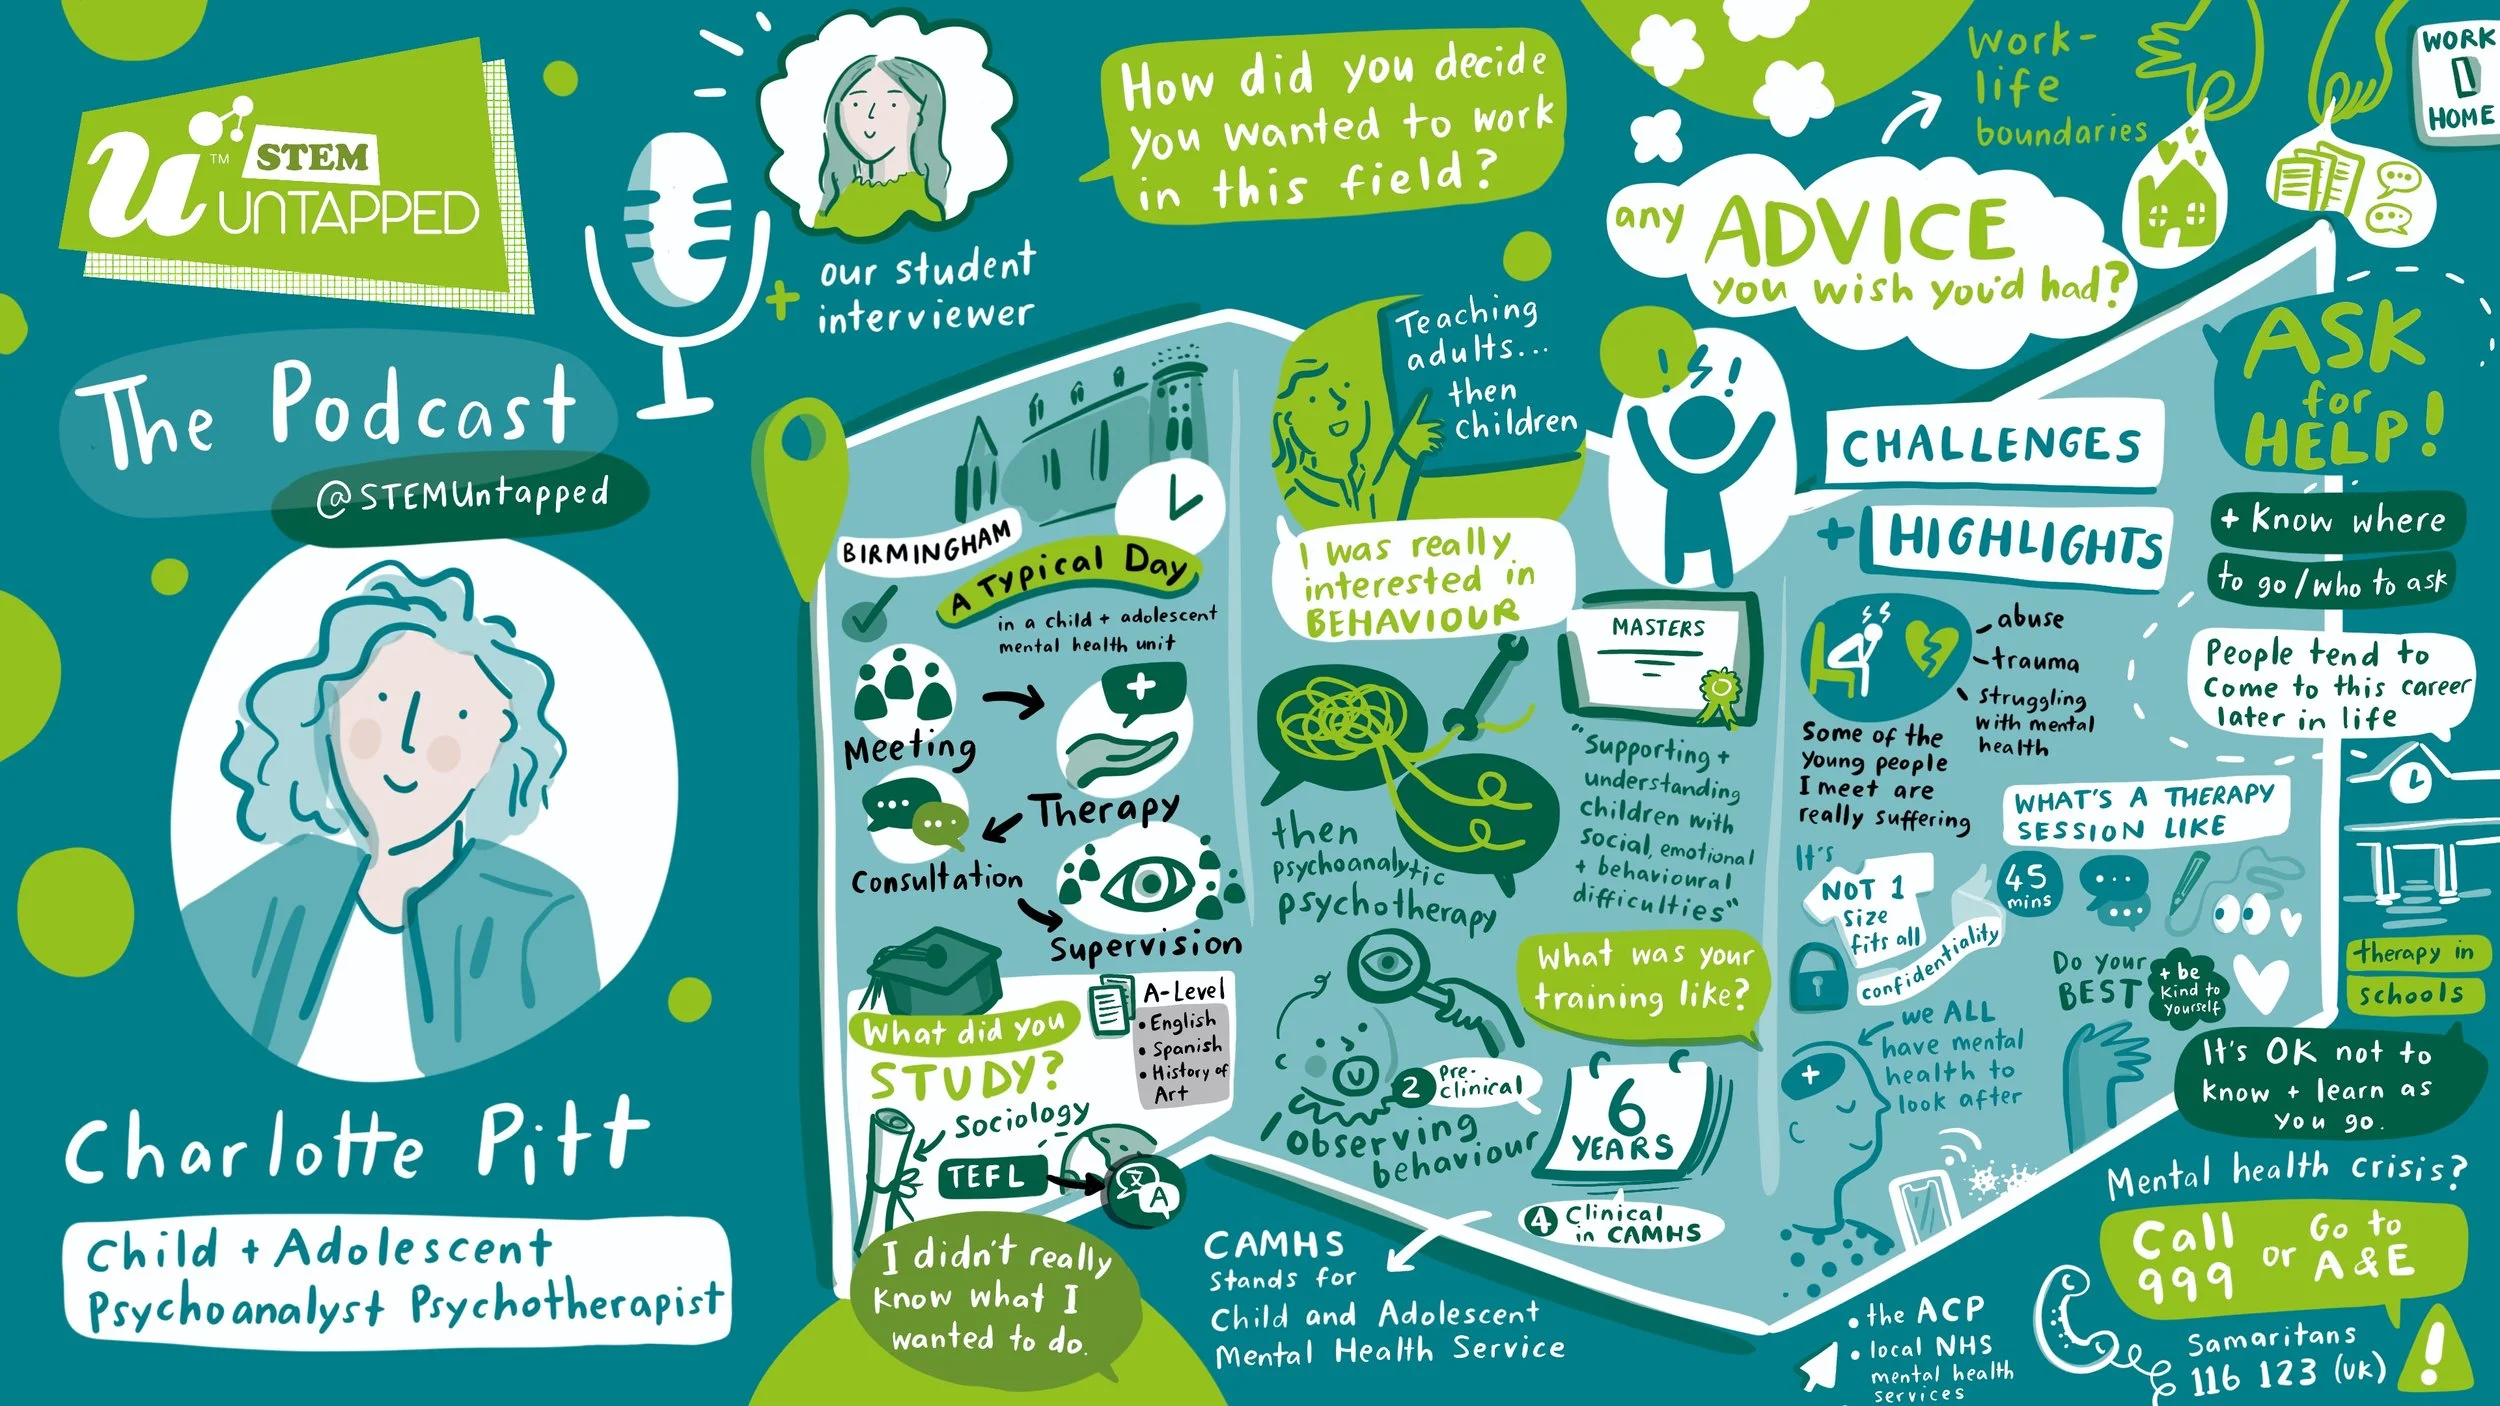 u™ STEM
UNTAPPED
The Podcast
@STEMUntapped
Charlotte Pitt
Child + Adolescent
Psychoanalyst Psychotherapist
+ our student
interviewer
How did you decide
you wanted to work
in this field?
BIRMINGHAM
A Typical Day
in a child + adolescent
mental health unit
Meeting
Therapy
Consultation
Supervision
What did you
STUDY?
A-Level
• English
• Spanish
• History of
Art
Sociology
TEFL
A
I didn't really
know what I
wanted to do.
Teaching
adults...
then
children
I was really
interested in
BEHAVIOUR
then
psychoanalytic
psychotherapy
MASTERS
"Supporting +
understanding
children with
social, emotional
+ behavioural
difficulties"
What was your
training like?
2 Pre-
clinical
Observing
behaviour
6
YEARS
4 Clinical
in CAMHS
CAMHS
Stands for
Child and Adolescent
Mental Health Service
any ADVICE
you wish you'd had?
Work-
life
boundaries
WORK
HOME
CHALLENGES
+ HIGHLIGHTS
abuse
trauma
struggling
with mental
health
Some of the
Young people
I meet are
really suffering
WHAT'S A THERAPY
SESSION LIKE
It's
NOT 1
size
fits all
confidentiality
45
mins
Do your
BEST
+ be
Kind to
Yourself
we ALL
have mental
health to
look after
ASK
for
HELP!
+ Know where
to go/who to ask
People tend to
Come to this career
later in life
therapy in
schools
It's OK not to
know + learn as
you go.
Mental health crisis?
Call
999
or
Go to
A & E
Samaritans
116 123 (UK)
• the ACP
• local NHS
mental health
services